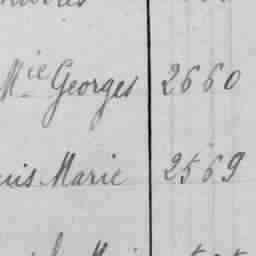 Mie Georges 2660
uis Marie 2569